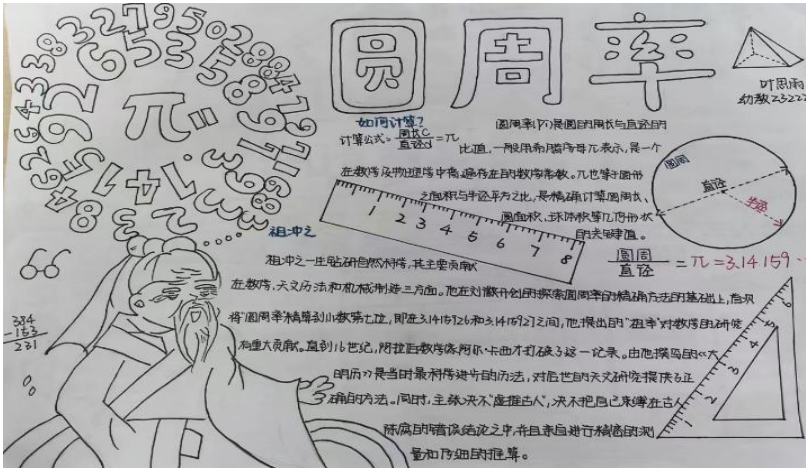 圆周率
叶思雨
幼教23222
π=
如何计算?
计算公式:周长C/直径d=π
圆周率(Pi)是圆的周长与直径的
比值,一般用希腊字母π表示,是一个
在数学及物理学中普遍存在的数学常数。π也等于圆形
之面积与半径平方之比,是精确计算圆周长、
圆面积、球体积等几何形状
的关键值。
圆周
直径
半径
1 2 3 4 5 6 7 8
圆周/直径=π=3.14159··
祖冲之
祖冲之一生钻研自然科学,其主要贡献
在数学、天文历法和机械制造三方面。他在刘徽开创的探索圆周率的精确方法的基础上,首次
将"圆周率"精算到小数第七位,即在3.1415926和3.1415927之间,他提出的"祖率"对数学的研究
有重大贡献。直到16世纪,阿拉伯数学家阿尔·卡西才打破了这一纪录。由他撰写的《大
明历》是当时最科学进步的历法,对后世的天文研究提供了正
确的方法。同时,主张决不"虚推古人",决不把自己束缚在古人
陈腐的错误结论之中,并且亲自进行精密的测
量和仔细的推算。
384
-153
231
1 2 3 4 5 6